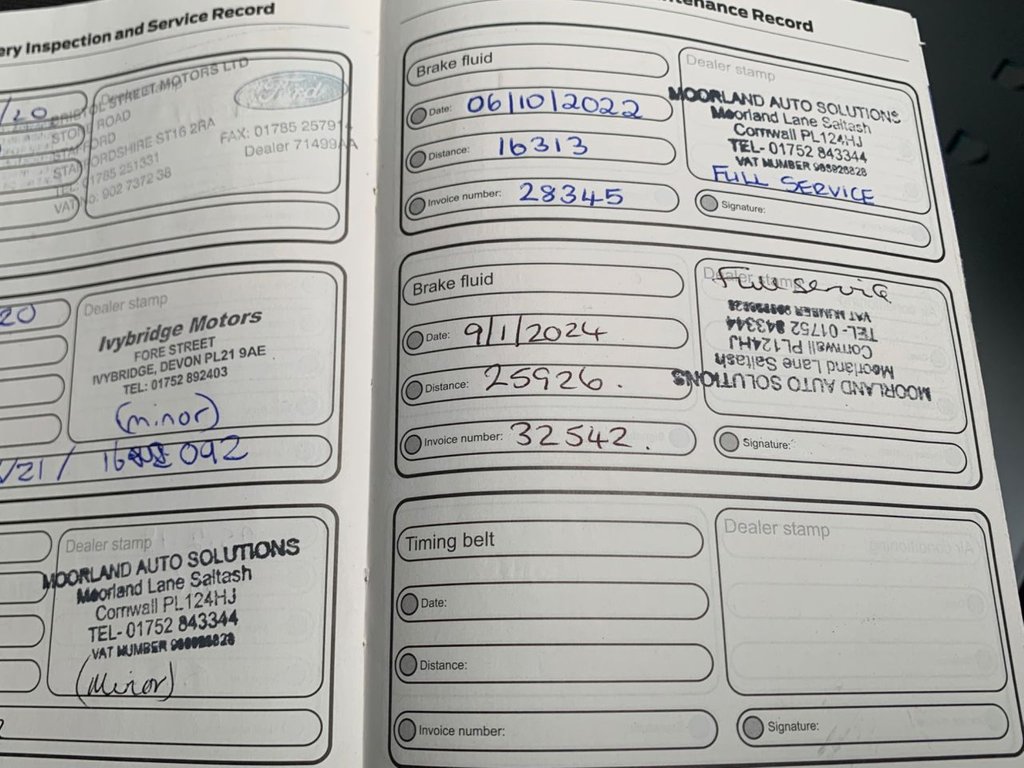 ery Inspection and Service Record
/20
STREET MOTORS LTD
Ford
ROAD
FORD
FAX: 01785 25791
ORDSHIRE ST16 2RA
Dealer 71499AA
TEL: 01785 251331
VAT No. 902 7372 38
20
Dealer stamp
Ivybridge Motors
FORE STREET
IVYBRIDGE, DEVON PL21 9AE
TEL: 01752 892403
(minor)
/21/
092
Dealer stamp
MOORLAND AUTO SOLUTIONS
Moorland Lane Saltash
Cornwall PL124HJ
TEL- 01752 843344
VAT NUMBER
(Minor)
tenance Record
Brake fluid
Date: 06/10/2022
Distance: 16313
Invoice number: 28345
Dealer stamp
MOORLAND AUTO SOLUTIONS
Moorland Lane Saltash
Cornwall PL124HJ
TEL- 01752 843344
VAT NUMBER
FULL SERVICE
Signature:
Brake fluid
Date: 9/1/2024
Distance: 25926.
Invoice number: 32542.
Dealer stamp
Full Service
MOORLAND AUTO SOLUTIONS
Moorland Lane Saltash
Cornwall PL124HJ
TEL- 01752 843344
VAT NUMBER
Signature:
Timing belt
Date:
Distance:
Invoice number:
Dealer stamp
Signature: